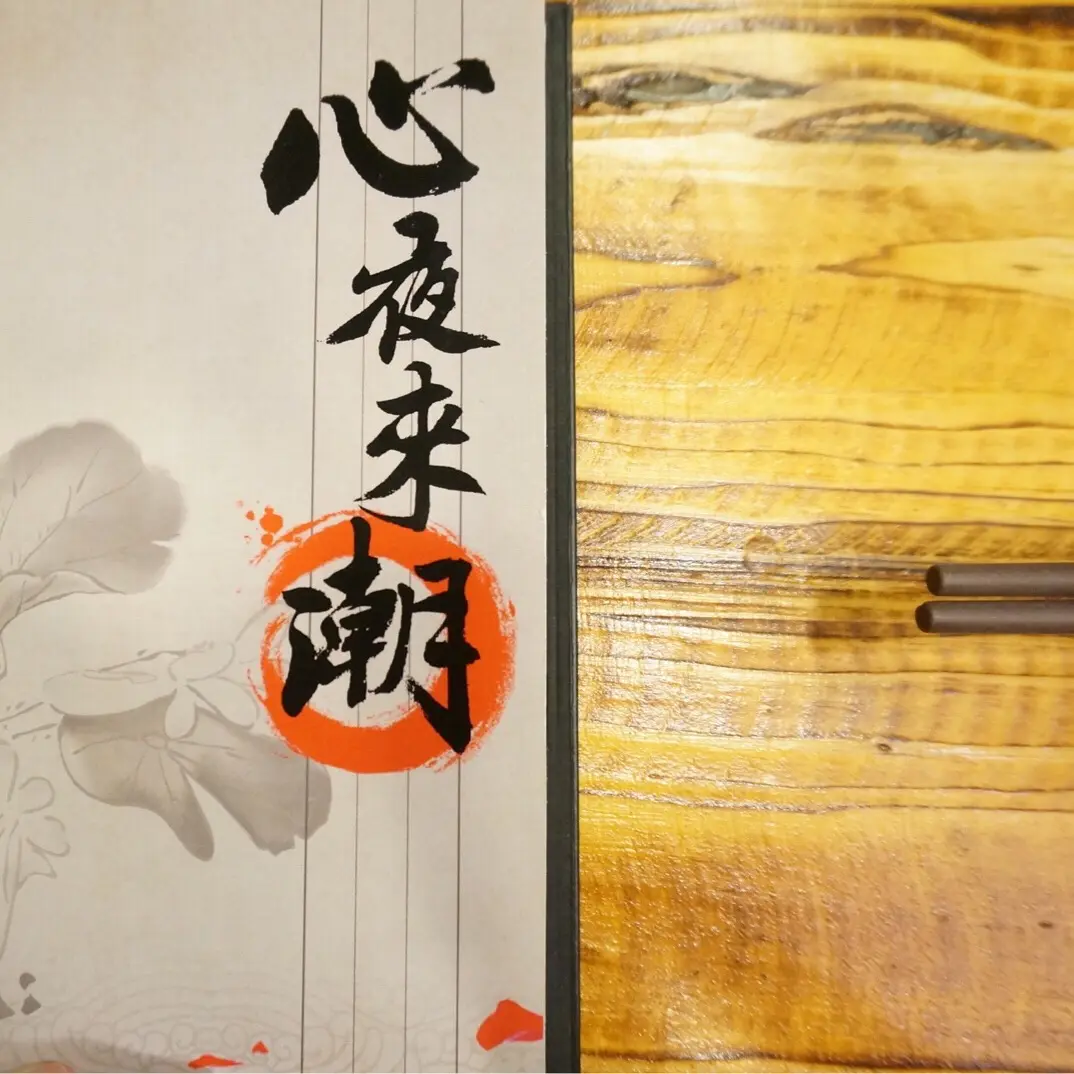 心夜来潮